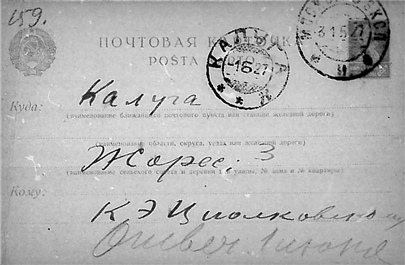 159.
ПОЧТОВАЯ КАРТОЧКА
POSTA
КАЛУГА
27
27
Куда: Калуга
(наименование ближайшего почтового пункта или станции железной дороги)
(наименование области, округа, уезда или железной дороги)
Жорес, 3
(наименование сельского совета и деревни или улицы, № дома и № квартиры)
Кому:
К Э Циолковскому
Ответ